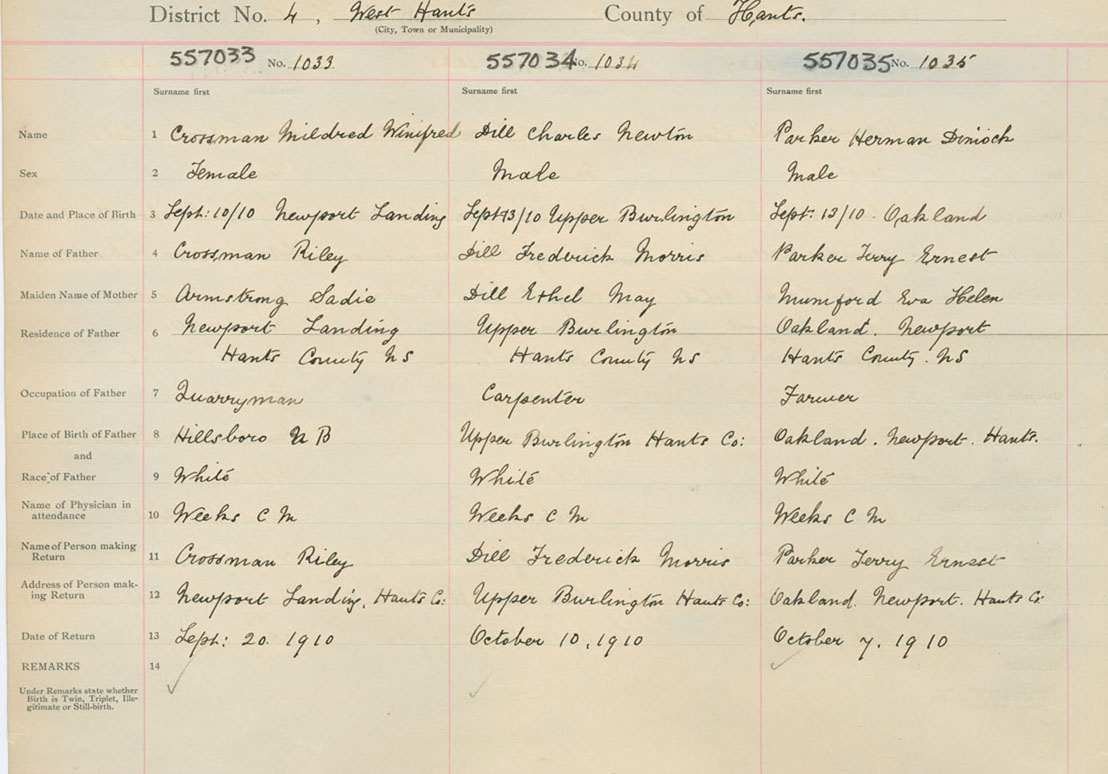 District No. 4, West Hants County of Hants.
(City, Town or Municipality)
557033 No. 1033 557034 No. 1034 557035 No. 1035
Surname first Surname first Surname first
Name 1 Crossman Mildred Winifred Dill Charles Newton Parker Herman Dimock
Sex 2 Female Male Male
Date and Place of Birth 3 Sept: 10/10 Newport Landing Sept 13/10 Upper Burlington Sept: 13/10. Oakland
Name of Father 4 Crossman Riley Dill Frederick Morris Parker Terry Ernest
Maiden Name of Mother 5 Armstrong Sadie Dill Ethel May Mumford Eva Helen
Residence of Father 6 Newport Landing Upper Burlington Oakland. Newport
Hants County NS Hants County NS Hants County. NS
Occupation of Father 7 Quarryman Carpenter Farmer
Place of Birth of Father 8 Hillsboro N B Upper Burlington Hants Co: Oakland. Newport. Hants.
and
Race of Father 9 White White White
Name of Physician in
attendance 10 Weeks C M Weeks C M Weeks C M
Name of Person making
Return 11 Crossman Riley Dill Frederick Morris Parker Terry Ernest
Address of Person mak-
ing Return 12 Newport Landing, Hants Co: Upper Burlington Hants Co: Oakland. Newport. Hants Co:
Date of Return 13 Sept: 20. 1910 October 10, 1910 October 7, 1910
REMARKS 14
Under Remarks state whether
Birth is Twin, Triplet, Ille-
gitimate or Still-birth.